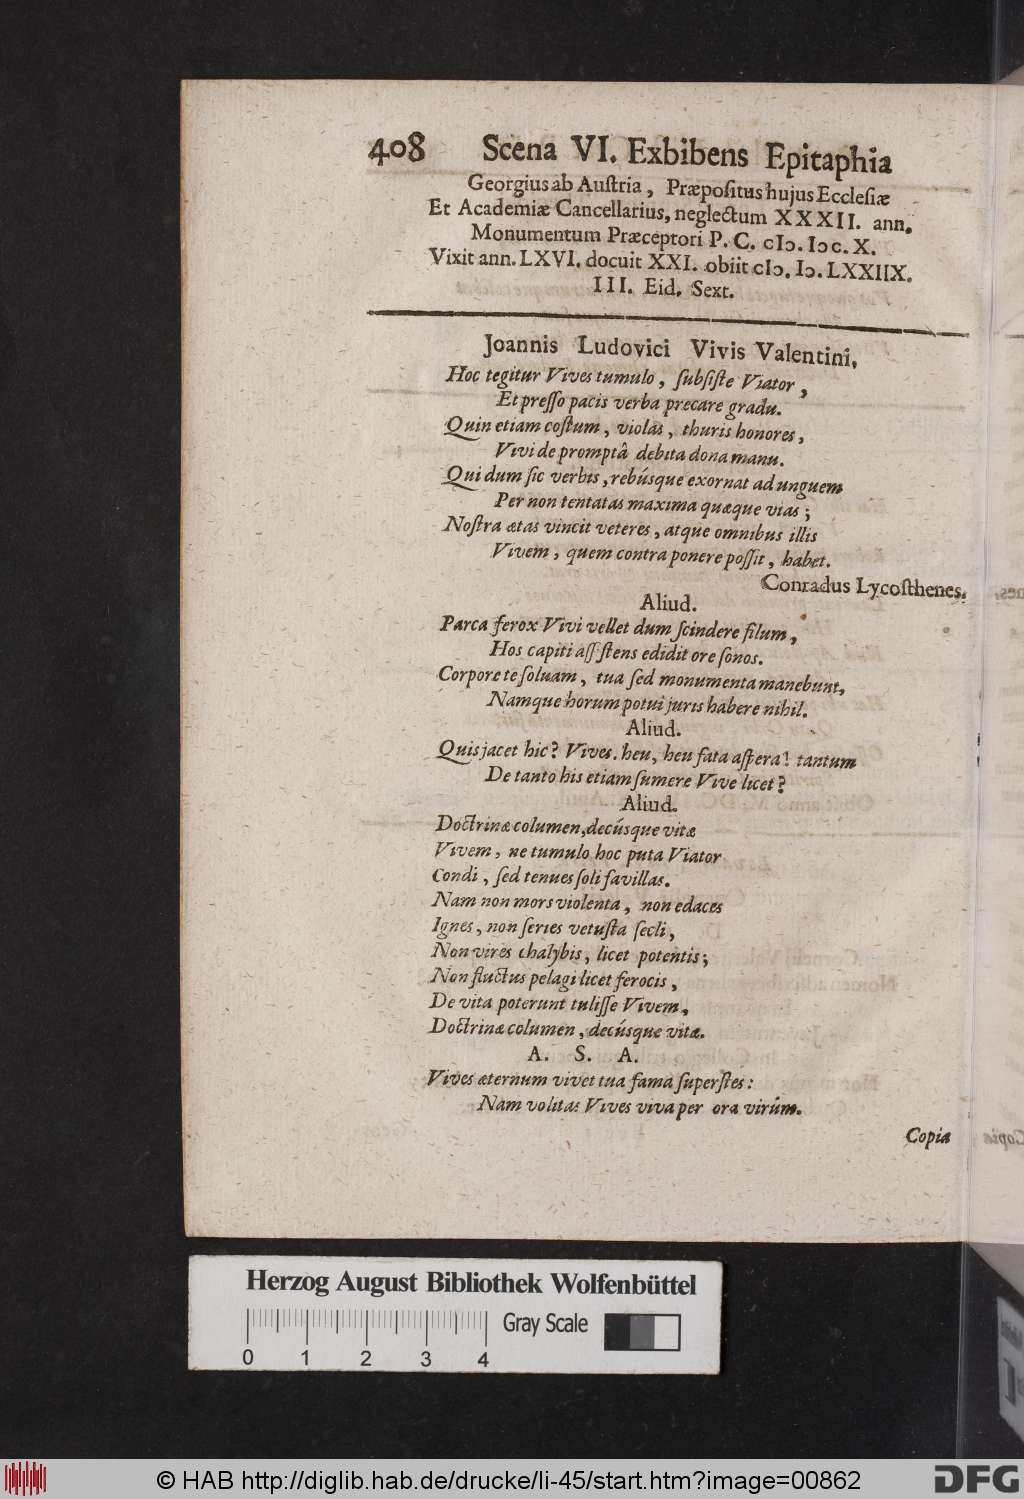 408 Scena VI. Exbibens Epitaphia
Georgius ab Auſtria, Præpoſitus hujus Eccleſiæ
Et Academiæ Cancellarius, neglectum XXXII. ann.
Monumentum Præceptori P. C. cIɔ. Iɔc. X.
Vixit ann. LXVI. docuit XXI. obiit cIɔ. Iɔ. LXXIIX.
III. Eid. Sext.
Joannis Ludovici Vivis Valentini,
Hoc tegitur Vives tumulo, ſubſiſte Viator,
Et preſſo pacis verba precare gradu.
Quin etiam coſtum, violas, thuris honores,
Vivi de promptâ debita dona manu.
Qui dum ſic verbis, rebúsque exornat ad unguem
Per non tentatas maxima quæque vias;
Noſtra ætas vincit veteres, atque omnibus illis
Vivem, quem contra ponere poſſit, habet.
Conradus Lycoſthenes.
Aliud.
Parca ferox Vivi vellet dum ſcindere filum,
Hos capiti aſſſtens edidit ore ſonos.
Corpore te ſoluam, tua ſed monumenta manebunt,
Namque horum potui juris habere nihil.
Aliud.
Quis jacet hic? Vives. heu, heu fata aſpera! tantum
De tanto his etiam ſumere Vive licet?
Aliud.
Doctrinæ columen, decúsque vitæ
Vivem, ne tumulo hoc puta Viator
Condi, ſed tenues ſoli favillas.
Nam non mors violenta, non edaces
Ignes, non ſeries vetuſta ſecli,
Non vires chalybis, licet potentis;
Non fluctus pelagi licet ferocis,
De vita poterunt tuliſſe Vivem,
Doctrinæ columen, decúsque vitæ.
A. S. A.
Vives æternum vivet tua fama ſuperſtes:
Nam volitas Vives viva per ora virûm.
Copia
Herzog August Bibliothek Wolfenbüttel
Gray Scale
0 1 2 3 4
© HAB http://diglib.hab.de/drucke/li-45/start.htm?image=00862
DFG